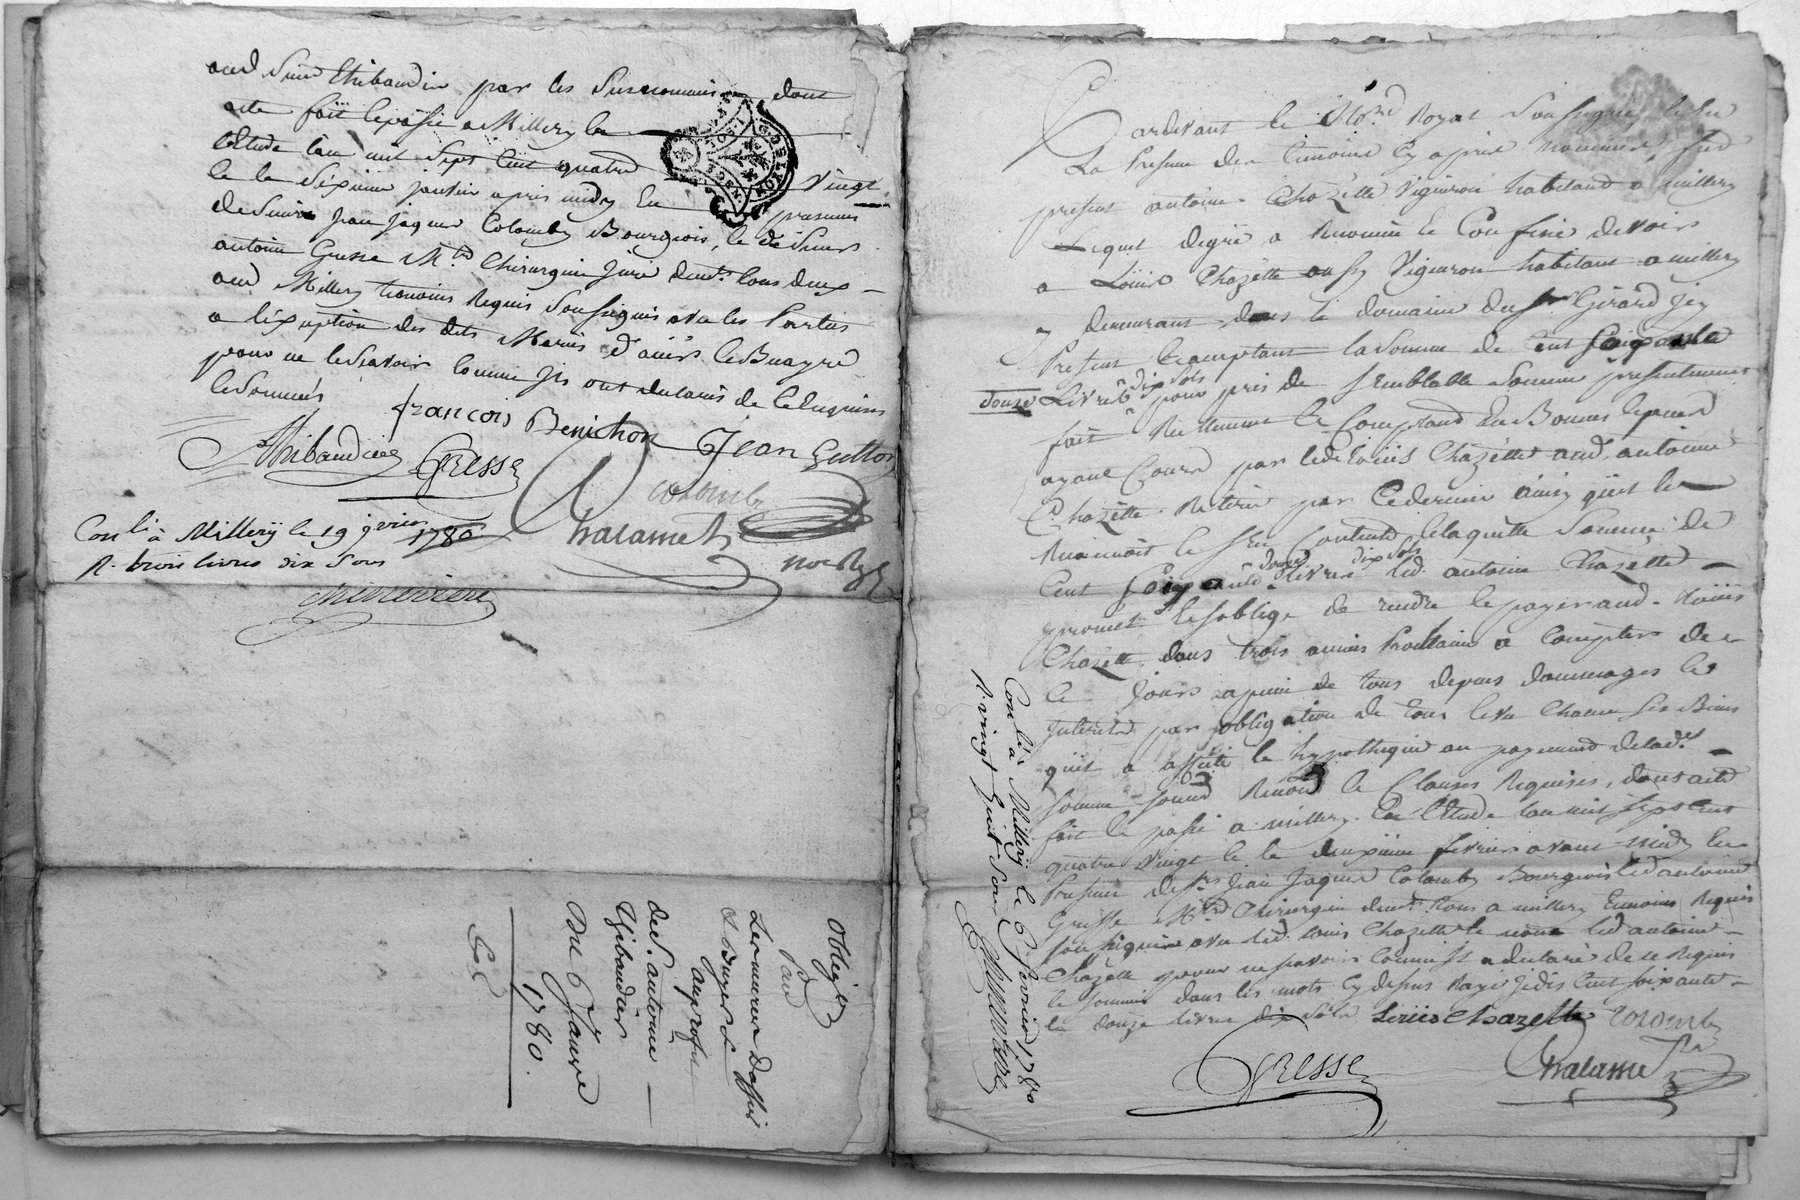 aud Sieur Thibaudier par les Susnommés dont
acte fait & passé a Millery en
l'Etude l'an mil Sept Cent quatre Vingt
& le Sixieme janvier apres midy En presence
de Sieur Jean Jaques Colomby Bourgeois, & de Sieur
antoine Gresse Mtre Chirurgien juré demt tous deux
aud Millery temoins Requis Soussignés avec les Parties
a l'exception des dits Mariés & Buyer
pour ne le Scavoir Comme ils ont declarés de ce Enquis
& Sommés
françois Benichon Jean Gutton
Thibaudier Gresse Colomby
Chalamel
not Rl
Conlé à Millery le 19 janvier 1780
R. trois livres dix Sous
Oblige
Pour
auprofit
de S. antoine
Thibaudier
Du 6 Janvr
1780.
Pardevant le No.re Royal Soussigné, & en
La Presence des temoins Cy apres nommés fut
present antoine Chazette Vigneron habitant a millery
Lequel de gré a Reconnu & Confessé devoir
a Louis Chazette aussy Vigneron habitant a millery
& demeurant dans le domaine du Sr Girard icy
Present & acceptant la Somme de Cent Soixante
douze Livres dix Sols pour pres de Semblable Somme presentement
ayant Cours par led Louis Chazette aud antoine
Chazette Retiré par Ce dernier ainsy qu'il le
Reconnoit & S'en Contente laquelle Somme de
Cent Soixante douze livres dix Sols led. antoine Chazette
promet & s'oblige de rendre & payer aud. Louis
Chazette dans trois années Prochaines a Compter de
Ce jour a peine de tous depens dommages &
Interets par obligation de tous & un Chacun Ses Biens
qu'il a affecté & hypothequé au payement de lad.e
Somme Renon & Clauses Requises, dont acte
fait & passé a millery En l'Etude l'an mil Sept Cent
quatre Vingt & le deuxieme fevrier avant midy En
Presence de Srs Jean Jaques Colomby Bourgeois & d'antoine
Gresse Mtre Chirurgien demt tous a millery temoins Requis
Soussignés avec led. Louis Chazette & non led antoine
Chazette pour ne Scavoir Comme il a declaré de ce Requis
& Sommé dans les mots Cy dessus Rayé je dis Cent Soixante
& douze livres dix Sols Louis Chazette Colomby
Gresse Chalamel
Conlé à Millery le 6 fevrier 1780
R vingt huit sous